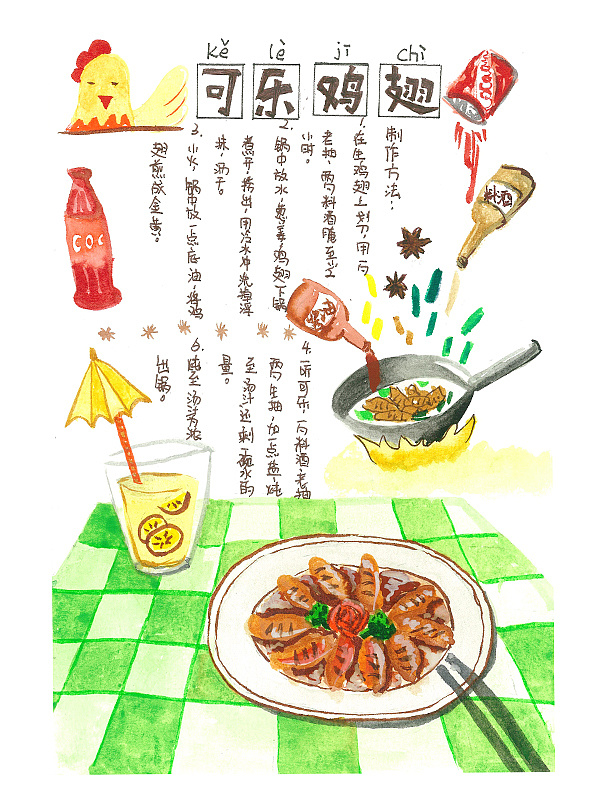 kě lè jī chì
可乐鸡翅
制作方法:
1. 在生鸡翅上划刀,用一勺
老抽、两勺料酒腌至
小时。
2. 锅中放水,葱、姜、鸡翅下锅
煮开,捞出,用冷水冲洗漂浮
沫,沥干。
3. 小火,锅中放一点底油,将鸡
翅煎成金黄。
4. 一听可乐,一勺料酒,老抽
两勺生抽,加一点盐,炖
至汤汁还剩一碗水的
量。
6. 炖至汤汁浓
出锅。
料酒
COC